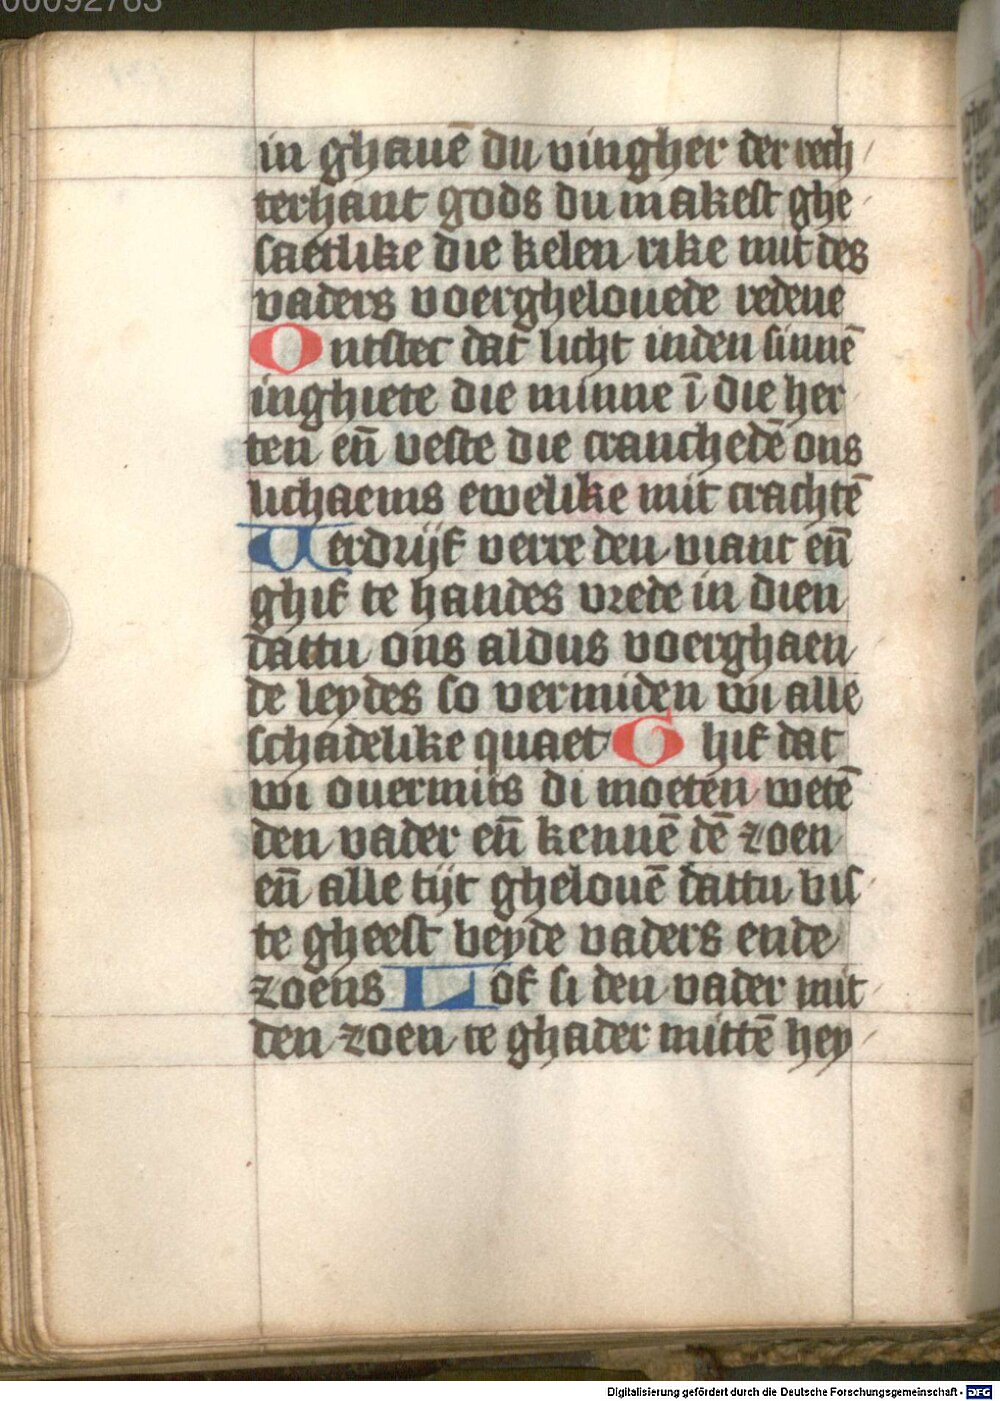 00092763
in ghauē du vingher der rech
terhant gods du makest ghe
saetlike die kelen rike mit des
vaders voerghelouede redene
Ontstec dat licht inden sinnē
inghiete die minne ī die her
ten en̄ veste die cranchedē ons
lichaems ewelike mit crachtē
Verdrijf verre den viant en̄
ghif te handes vrede in dien
dattu ons aldus voerghaen
de leydes so vermiden wi alle
schadelike quaet Ghif dat
wi ouermits di moeten wetē
den vader en̄ kennē dē zoen
en̄ alle tijt ghelouē dattu bis
te gheest beyde vaders ende
zoens Lof si den vader mit
den zoen te gader mittē hey
Digitalisierung gefördert durch die Deutsche Forschungsgemeinschaft - DFG